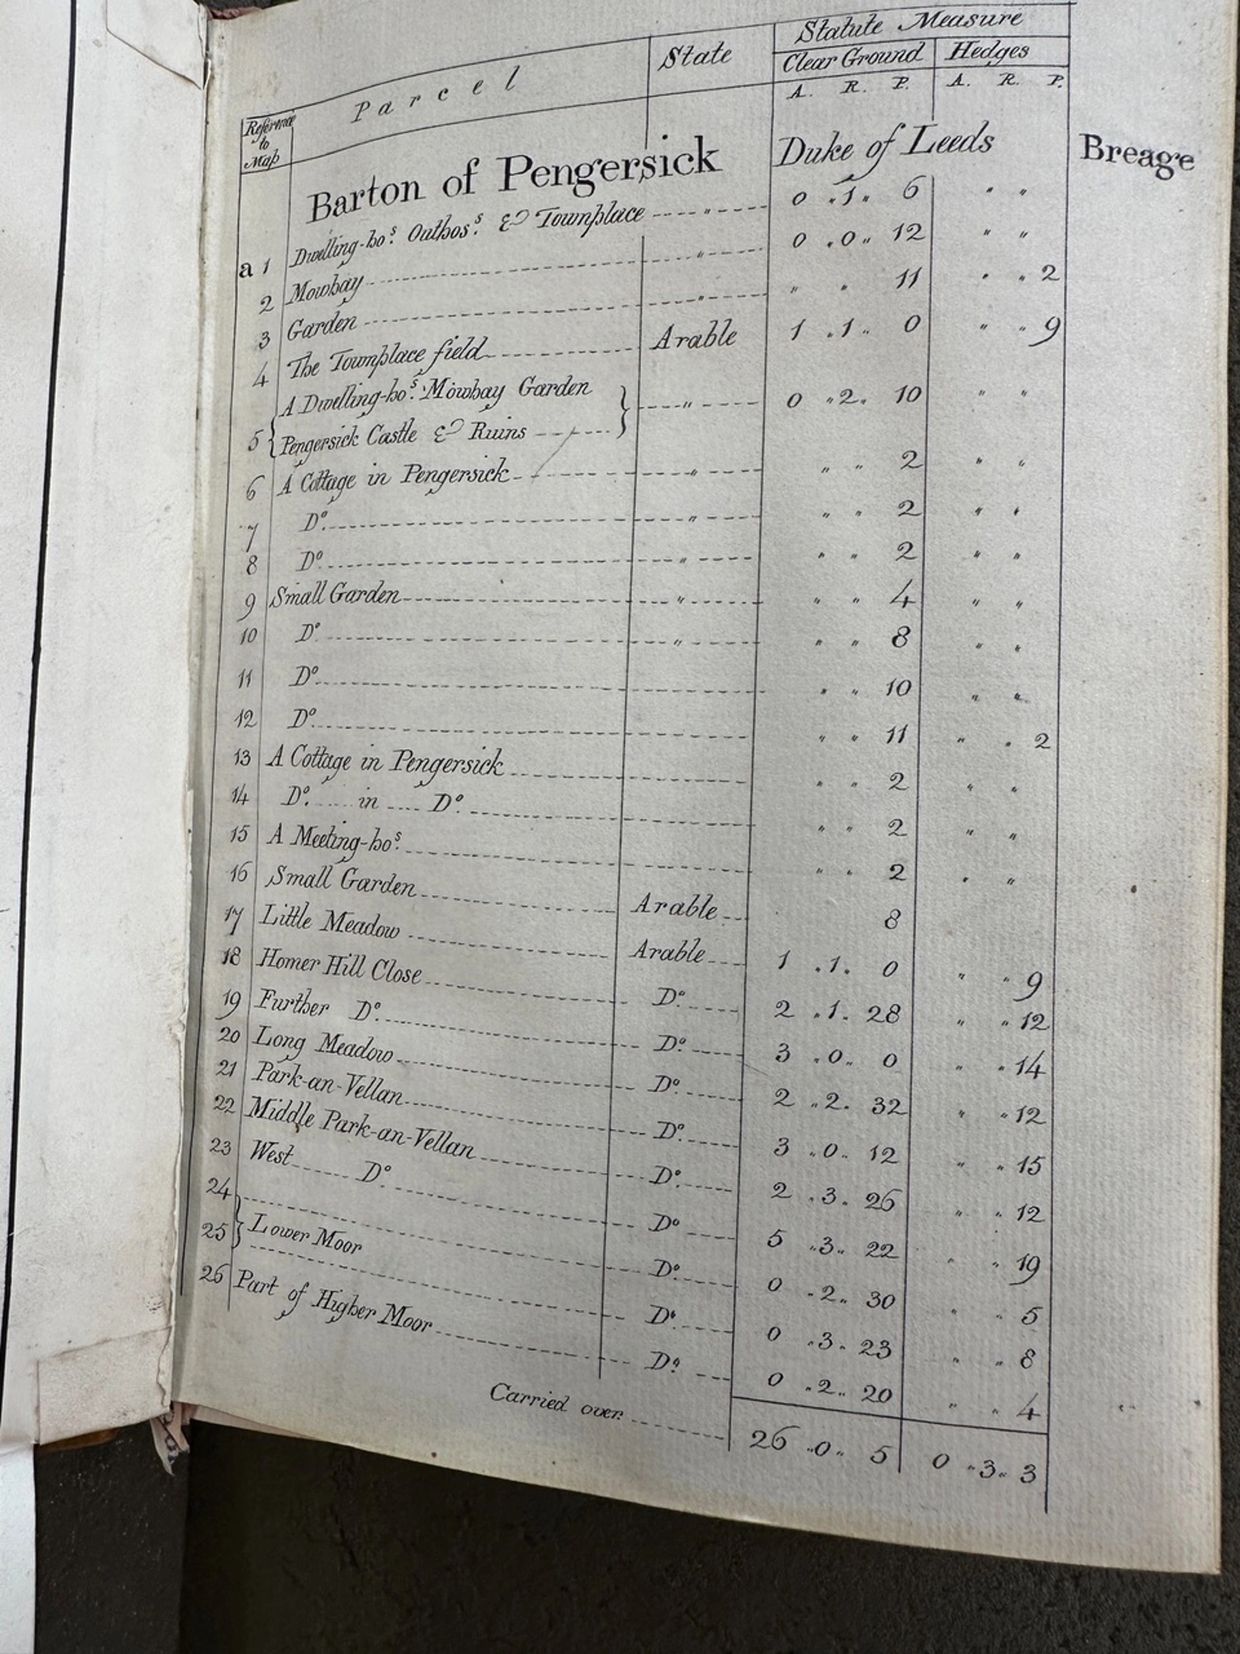 Statute Measure
Parcel State Clear Ground Hedges
Reference to Map A. R. P. A. R. P.
Barton of Pengersick Duke of Leeds Breage
a 1 Dwelling-ho.s Outhos.s & Townplace " 0 „1„ 6 " "
2 Mowhay " 0 „0„ 12 " "
3 Garden " " " 11 " " 2
4 The Townplace field Arable 1 „1„ 0 " " 9
5 { A Dwelling-ho.s Mowhay Garden
Pengersick Castle & Ruins } " 0 „2„ 10 " "
6 A Cottage in Pengersick " " " 2 " "
7 Do. " " " 2 " "
8 Do. " " " 2 " "
9 Small Garden " " " 4 " "
10 Do " " " 8 " "
11 Do " " 10 " "
12 Do. " " 11 " " 2
13 A Cottage in Pengersick " " 2 " "
14 Do. in Do. " " 2 " "
15 A Meeting-ho.s " " 2 " "
16 Small Garden Arable 8
17 Little Meadow Arable 1 „1„ 0 " " 9
18 Homer Hill Close Do. 2 „1„ 28 " " 12
19 Further Do. Do. 3 „0„ 0 " " 14
20 Long Meadow Do. 2 „2„ 32 " " 12
21 Park-an-Vellan Do. 3 „0„ 12 " " 15
22 Middle Park-an-Vellan Do. 2 „3„ 26 " " 12
23 West Do. Do 5 „3„ 22 " " 19
24 } Do. 0 „2„ 30 " " 5
25 } Lower Moor Do. 0 „3„ 23 " " 8
26 Part of Higher Moor Do. 0 „2„ 20 " " 4
Carried over 26 „0„ 5 0 „3„ 3